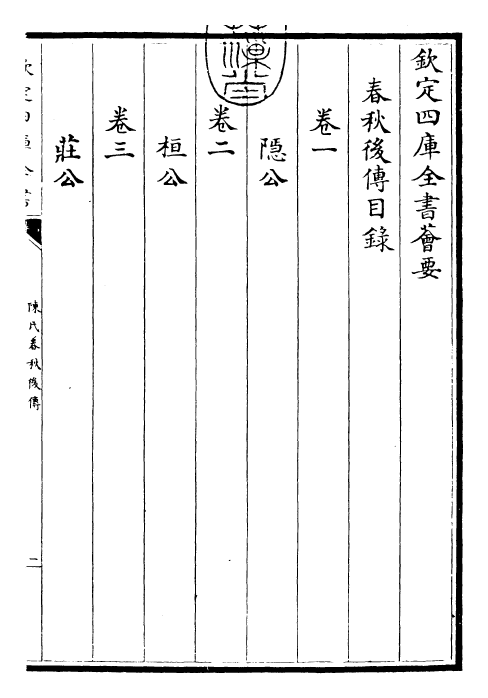 欽定四庫全書薈要
春秋後傳目錄
卷一
隱公
卷二
桓公
卷三
莊公
陳氏春秋後傳
二